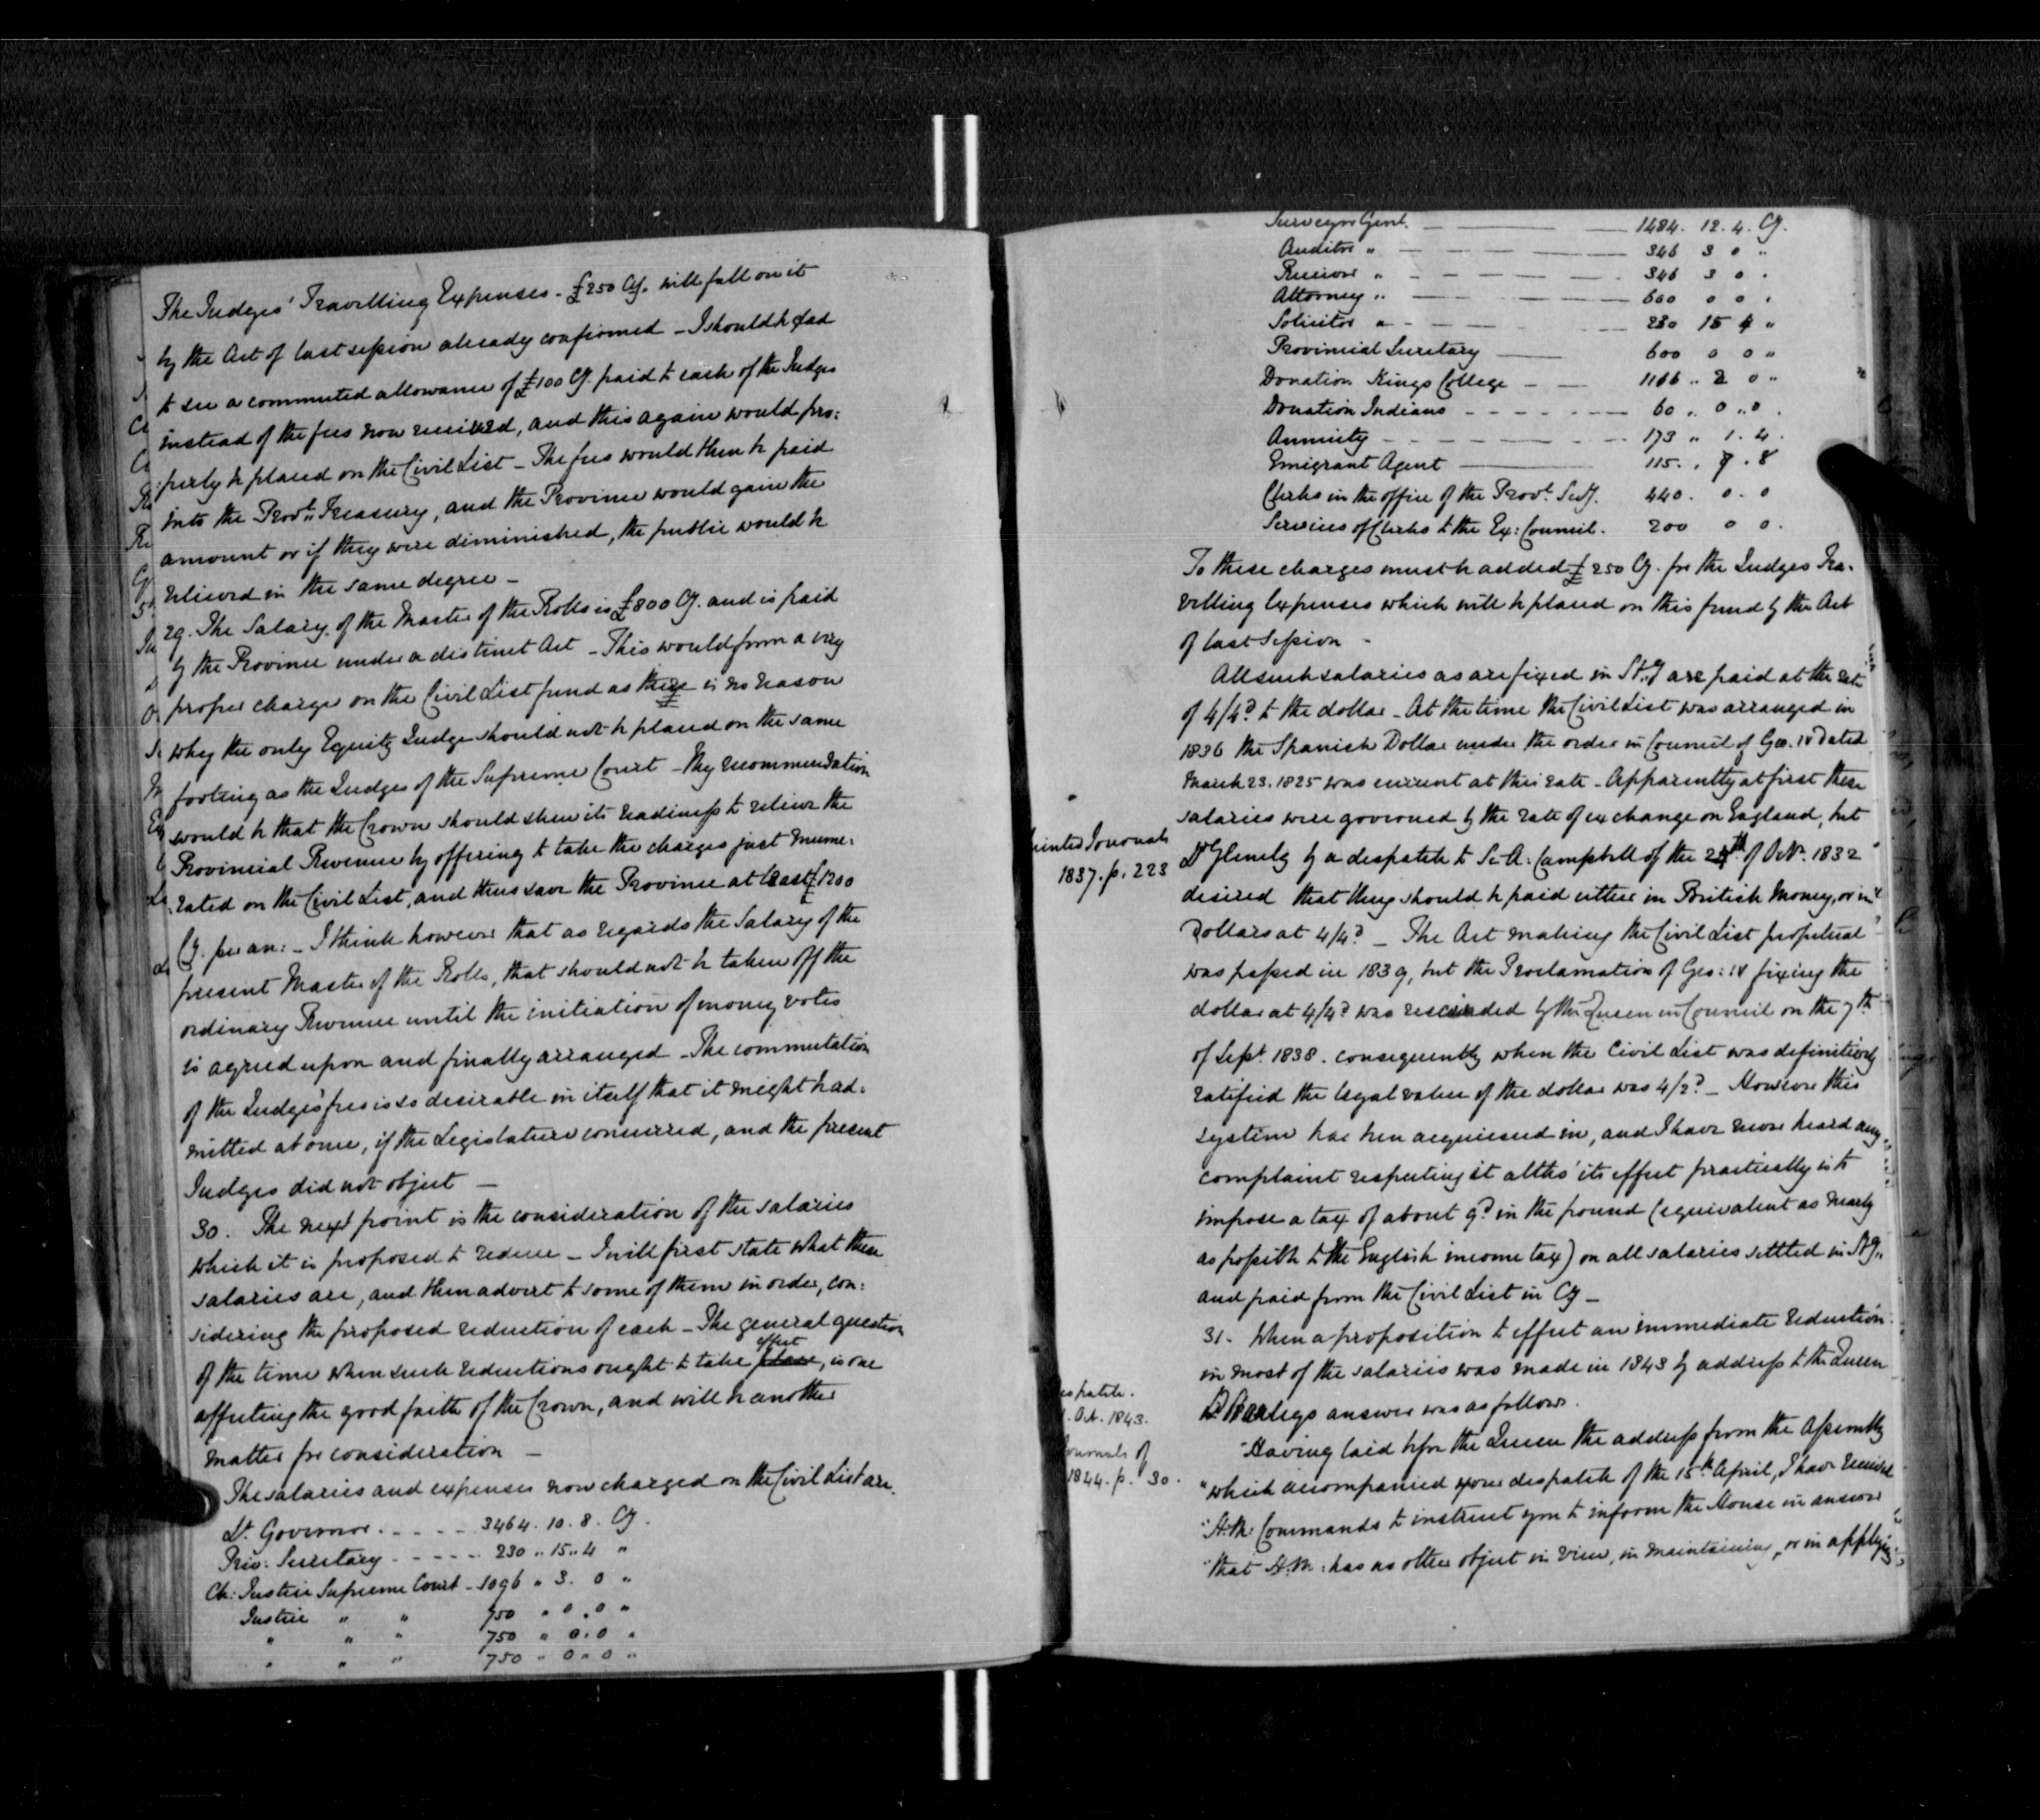 The Judges' Travelling Expenses - £250 Cy. will fall on it
by the Act of last session already confirmed - I should be glad
to see a commuted allowance of £100 Cy. paid to each of the Judges
instead of the fees now received, and this again would pro:
:perly be placed on the Civil List - The fees would then be paid
into the Prov.l Treasury, and the Province would gain the
amount or if they were diminished, the public would be
relieved in the same degree -
29. The Salary of the Master of the Rolls is £800 Cy. and is paid
by the Province under a distinct Act - This would form a very
proper charge on the Civil List fund as there is no reason
why the only Equity Judge should not be placed on the same
footing as the Judges of the Supreme Court - My recommendation
would be that the Crown should shew its readiness to relieve the
Provincial Revenue by offering to take the charges just enume:
:rated on the Civil List, and thus save the Province at least £1200
Cy. per an: - I think however that as regards the Salary of the
present Master of the Rolls, that should not be taken off the
ordinary Revenue until the initiation of money votes
is agreed upon and finally arranged - The commutation
of the Judges' fees is so desirable in itself that it might be ad:
mitted at once, if the Legislature concurred, and the present
Judges did not object -
30. The next point is the consideration of the salaries
which it is proposed to reduce - I will first state what these
salaries are, and then advert to some of them in order, con:
sidering the proposed reduction of each - The general question
of the time when such reductions ought to take place effect, is one
affecting the good faith of the Crown, and will be another
matter for consideration -
The salaries and expenses now charged on the Civil List are.
Lt. Governor. - - - - 3464. 10. 8. Cy.
Priv: Secretary - - - - - 230 .. 15 .. 4 "
Ch: Justice Supreme Court - 1096 " 3. 0 "
Justice " " 750 " 0 . 0 "
" " " 750 " 0 . 0 "
" " " 750 " 0 " 0 "
Surveyor Genl. - - - 1484. 12. 4. Cy.
Auditor " - - - 346 3 0 "
Receiver " - - - 346 3 0 .
Attorney " - - - 600 0 0 .
Solicitor " - - - 230 15 4 "
Provincial Secretary - 600 0 0 "
Donation Kings College - - 1106 .. 2 0 "
Donation Indians - - - - 60 .. 0 .. 0 .
Annuity - - - - 173 " 1. 4.
Emigrant Agent - 115. . 7 . 8
Clerks in the office of the Prov.l Secy. 440. 0. 0
Services of Clerks to the Ex: Council. 200 0 0.
To these charges must be added £250 Cy. for the Judges Tra.
velling Expenses which will be placed on this fund by the Act
of last Session -
All such salaries as are fixed in Stg are paid at the rate
of 4/4d to the dollar - At the time the Civil List was arranged in
1836 the Spanish Dollar under the order in Council of Geo. IV dated
March 23. 1825 was current at this rate - Apparently at first these
salaries were governed by the rate of exchange on England, but
Printed Journals
1837. p. 223
Ld Glenelg by a despatch to Sir A: Campbell of the 24th of Octr. 1832
desired that they should be paid either in British Money, or in
Dollars at 4/4d - The Act making the Civil List perpetual
was passed in 1839, but the Proclamation of Geo: IV fixing the
dollar at 4/4d was rescinded by the Queen in Council on the 7th
of Sept. 1838. consequently when the Civil List was definitively
ratified the legal value of the dollar was 4/2d - However this
system has been acquiesced in, and I have never heard any
complaint respecting it altho' its effect practically is to
impose a tax of about 9d in the pound (equivalent as nearly
as possible to the English income tax) on all salaries settled in Stg.,
and paid from the Civil List in Cy -
31. When a proposition to effect an immediate reduction
in most of the salaries was made in 1843 by address to the Queen
Despatch.
. Oct. 1843.
Ld Stanleys answer was as follows.
Journals of
1844. p. 30.
"Having laid before the Queen the address from the Assembly
"which accompanied your despatch of the 15th April, I have received
"H.M: Commands to instruct you to inform the House in answer
"that H.M: has no other object in view, in maintaining, or in applying